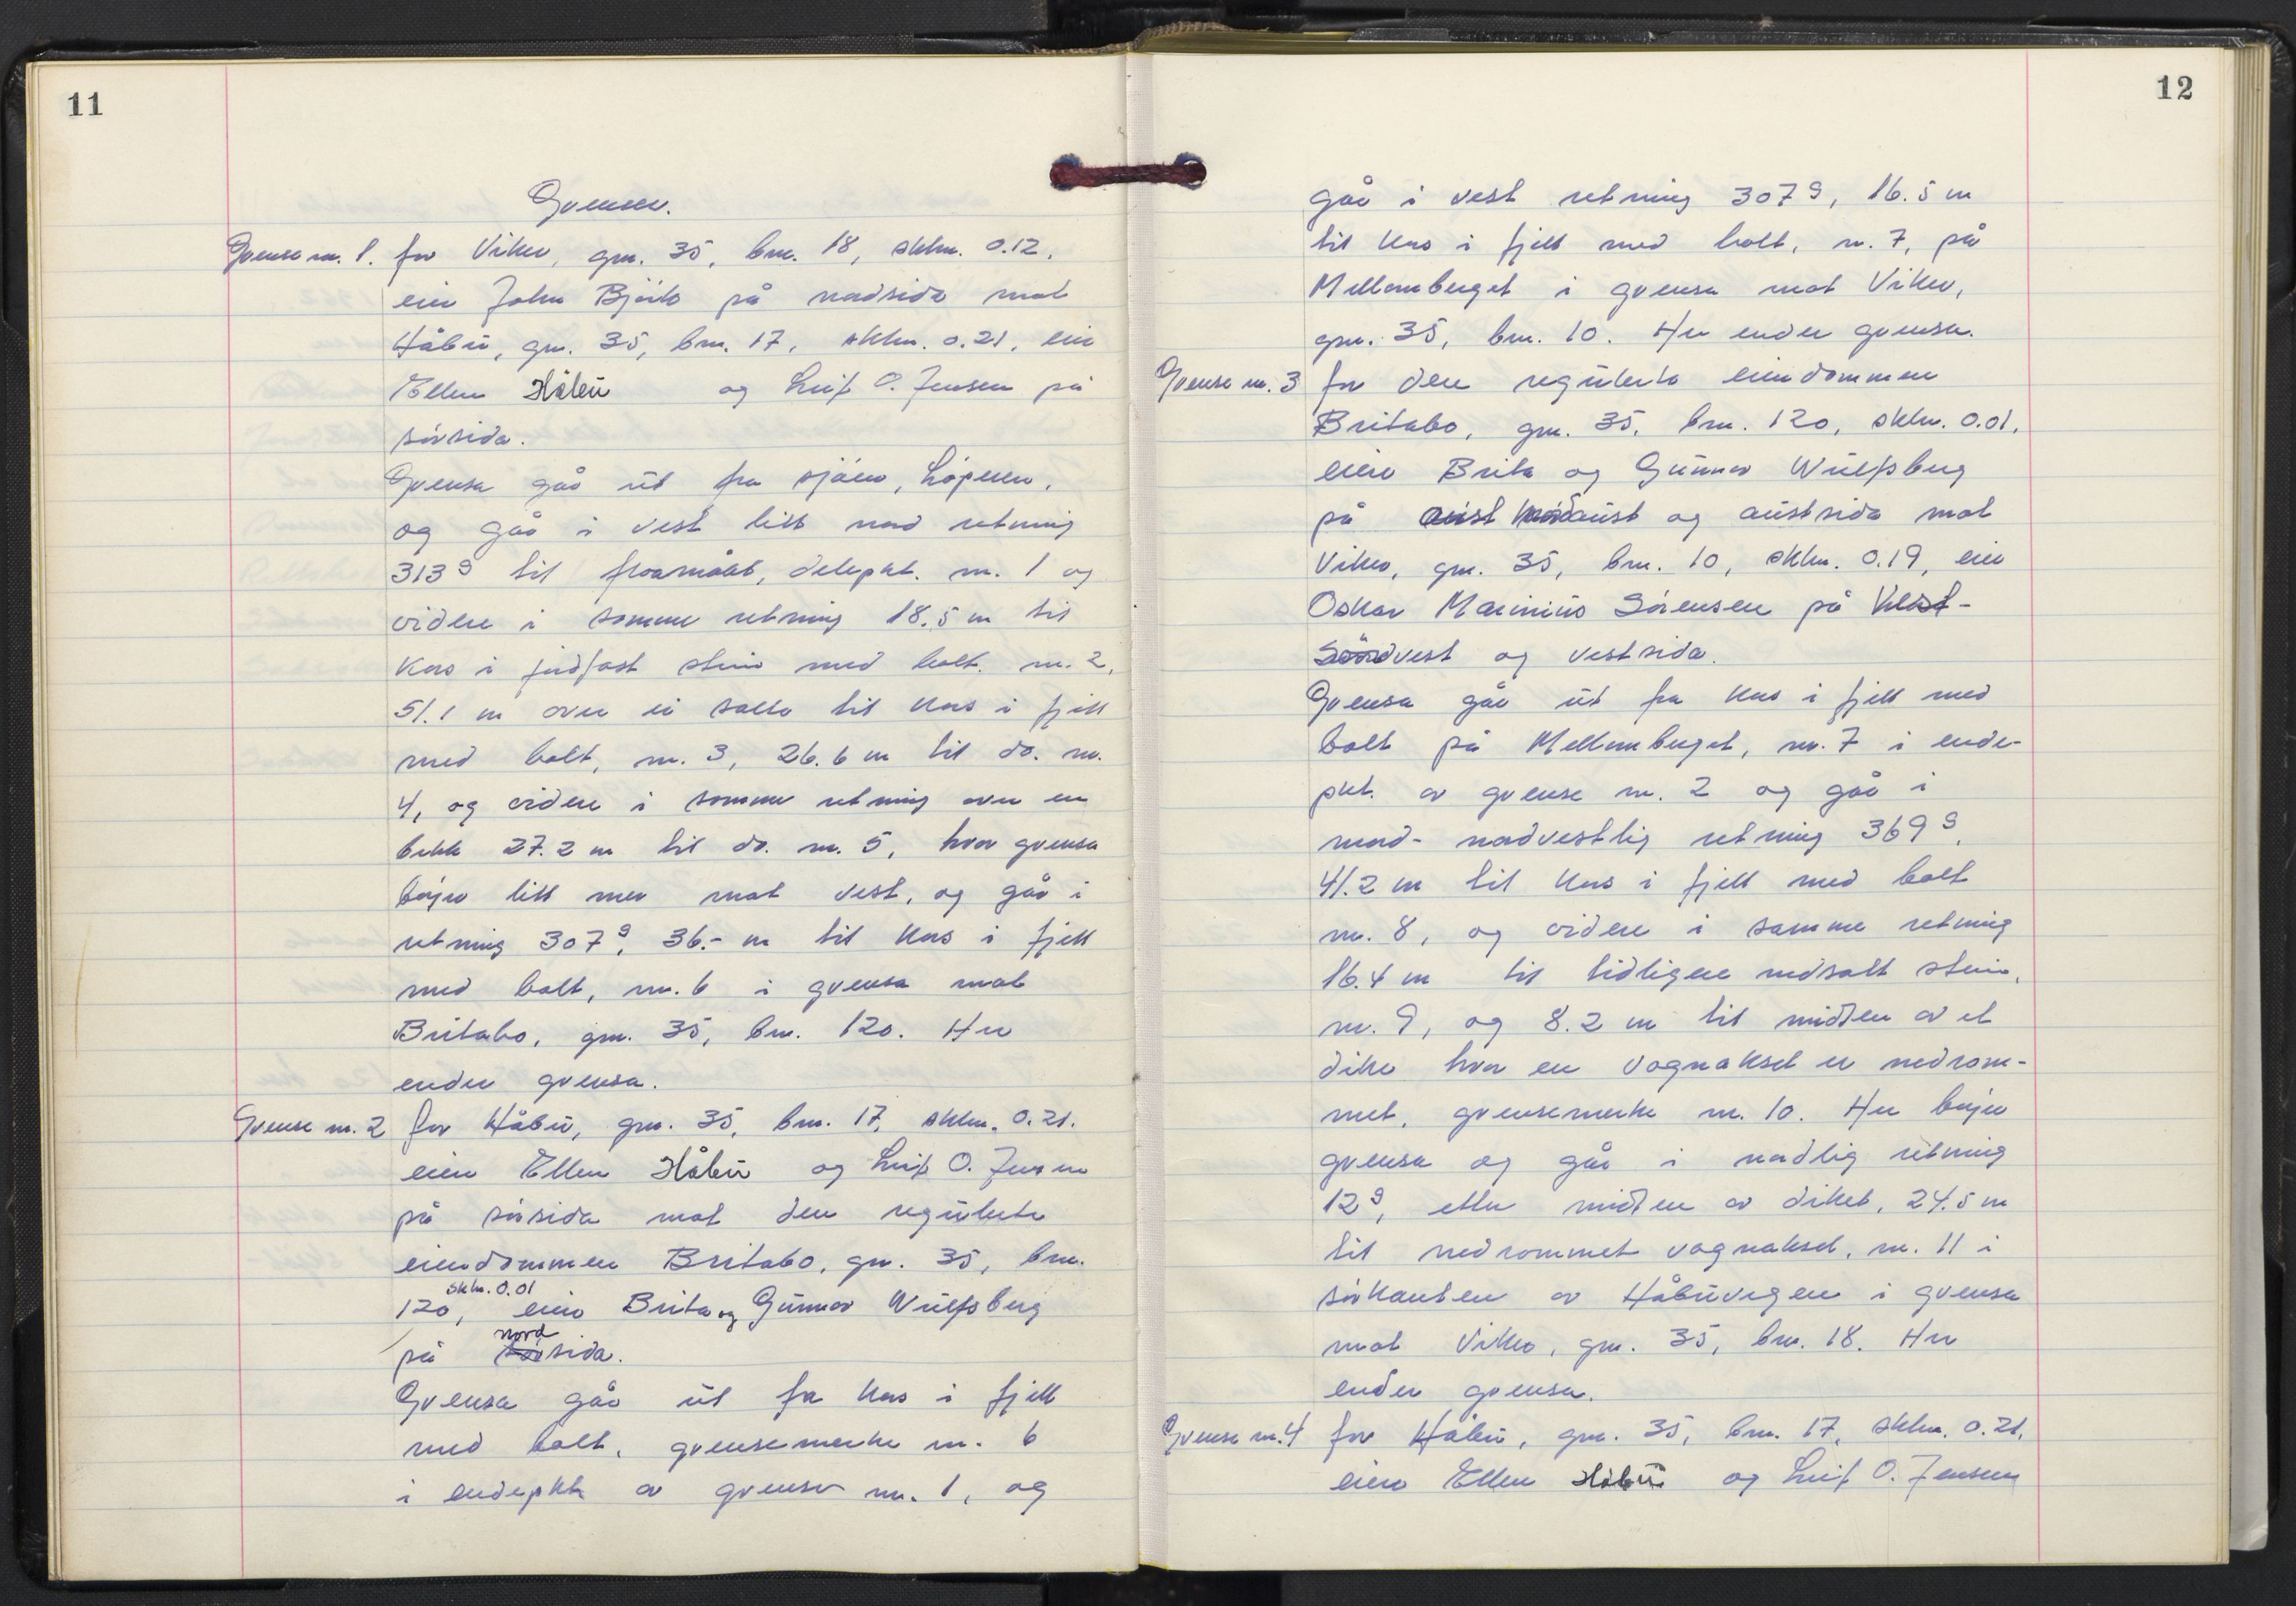 11
Grenser.
Grense nr. 1. for Viken, gnr. 35, bnr. 18, skkm. 0.12,
eier John Björk på nordsida mot
Håbu, gnr. 35, bnr. 17, skkm. 0.21, eier
Ellen Håbu og Leif O. Jensen på
sörsida.
Grensa går ut fra sjöen, Löperen,
og går i vest litt nord retning
313 g til floamålt, delepkt. nr. 1 og
videre i samme retning 18.5 m til
kors i jordfast stein med bolt. nr. 2,
51.1 m over ei sålte til kors i fjell
med bolt, nr. 3, 26.6 m til do. nr.
4, og videre i samme retning over en
bekk 27.2 m til do. nr. 5, hvor grensa
böyer litt mer mot vest, og går i
retning 307 g, 36.- m til kors i fjell
med bolt, nr. 6 i grensa mot
Britabo, gnr. 35, bnr. 120. Her
ender grensa.
Grense nr. 2 for Håbu, gnr. 35, bnr. 17, skkm. 0.21.
eier Ellen Håbu og Leif O. Jensen
på sörsida mot den regulerte
eiendommen Britabo, gnr. 35, bnr.
120, skkm. 0.01 eier Brita og Gunnar Wulfsberg
på sör nord sida.
Grensa går ut fra kors i fjell
med bolt, grensemerke nr. 6
i endepkt. av grense nr. 1, og
12
går i vest retning 307 g, 16.5 m
til kors i fjell med bolt, nr. 7, på
Mellomberget i grensa mot Viken,
gnr. 35, bnr. 10. Her ender grensa.
Grense nr. 3 for den regulerte eiendommen
Britabo, gnr. 35, bnr. 120, skkm. 0.01,
eier Brita og Gunnar Wulfsberg
på aust nordaust og austsida mot
Viken, gnr. 35, bnr. 10, skkm. 0.19, eier
Oskar Marinius Sörensen på Vest-
Sördvest og vestsida.
Grensa går ut fra kors i fjell med
bolt på Mellomberget, nr. 7 i ende-
pkt. av grense nr. 2 og går i
nord- nordvestlig retning 369 g,
41.2 m til kors i fjell med bolt
nr. 8, og videre i samme retning
16.4 m til tidligere nedsatt stein,
nr. 9, og 8.2 m til midten av et
dike hvor en vognaksel er nedram-
met, grensemerke nr. 10. Her böyer
grensa og går i nordlig retning
12 g, etter midten av diket, 24.5 m
til nedrammet vognaksel, nr. 11 i
sörkanten av Håbuvegen i grensa
mot Viken, gnr. 35, bnr. 18. Her
ender grensa.
Grense nr. 4 for Håbu, gnr. 35, bnr. 17, skkm. 0.21,
eier Ellen Håbu og Leif O. Jensen